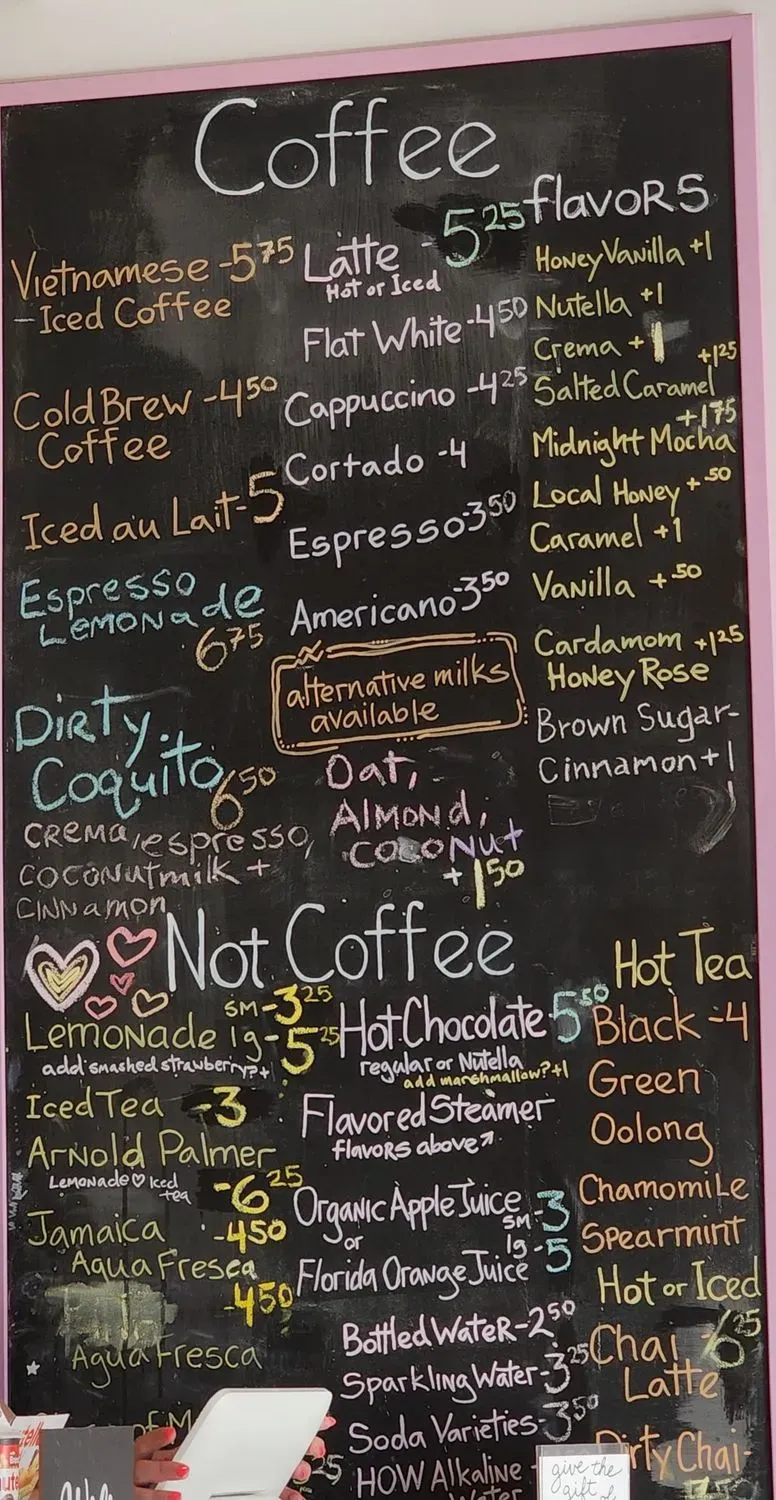 Coffee
Vietnamese -5 75
- Iced Coffee
Cold Brew -4 50
Coffee
Iced au Lait-5
Espresso
LEMONade
6 75
Dirty
Coquito 6 50
crema, espresso,
coconut milk +
cinnamon
Latte - 5 25
Hot or Iced
Flat White -4 50
Cappuccino -4 25
Cortado -4
Espresso -3 50
Americano -3 50
alternative milks
available
Oat,
ALMOND,
COCONut
+ 1 50
flavors
Honey Vanilla +1
Nutella +1
Crema + 1
+1 25
Salted Caramel
+1 75
Midnight Mocha
Local Honey + .50
Caramel +1
Vanilla + .50
Cardamom +1 25
Honey Rose
Brown Sugar-
Cinnamon +1
Not Coffee
SM -3 25
Lemonade lg- 5 25
add smashed strawberry? +
Iced Tea -3
Arnold Palmer
Lemonade ♡ Iced
tea -6 25
Jamaica -4 50
Agua Fresca
-4 50
Agua Fresca
of M
Hot Chocolate 5 50
regular or Nutella
add marshmallow? +1
Flavored Steamer
flavors above ↗
Organic Apple Juice
SM -3
or
lg -5
Florida Orange Juice
Bottled Water -2 50
Sparkling Water -3 25
Soda Varieties -3 50
HOW Alkaline
Water
25
Hot Tea
Black -4
Green
Oolong
Chamomile
Spearmint
Hot or Iced
Chai -6 25
Latte
Dirty Chai-
give the
gift